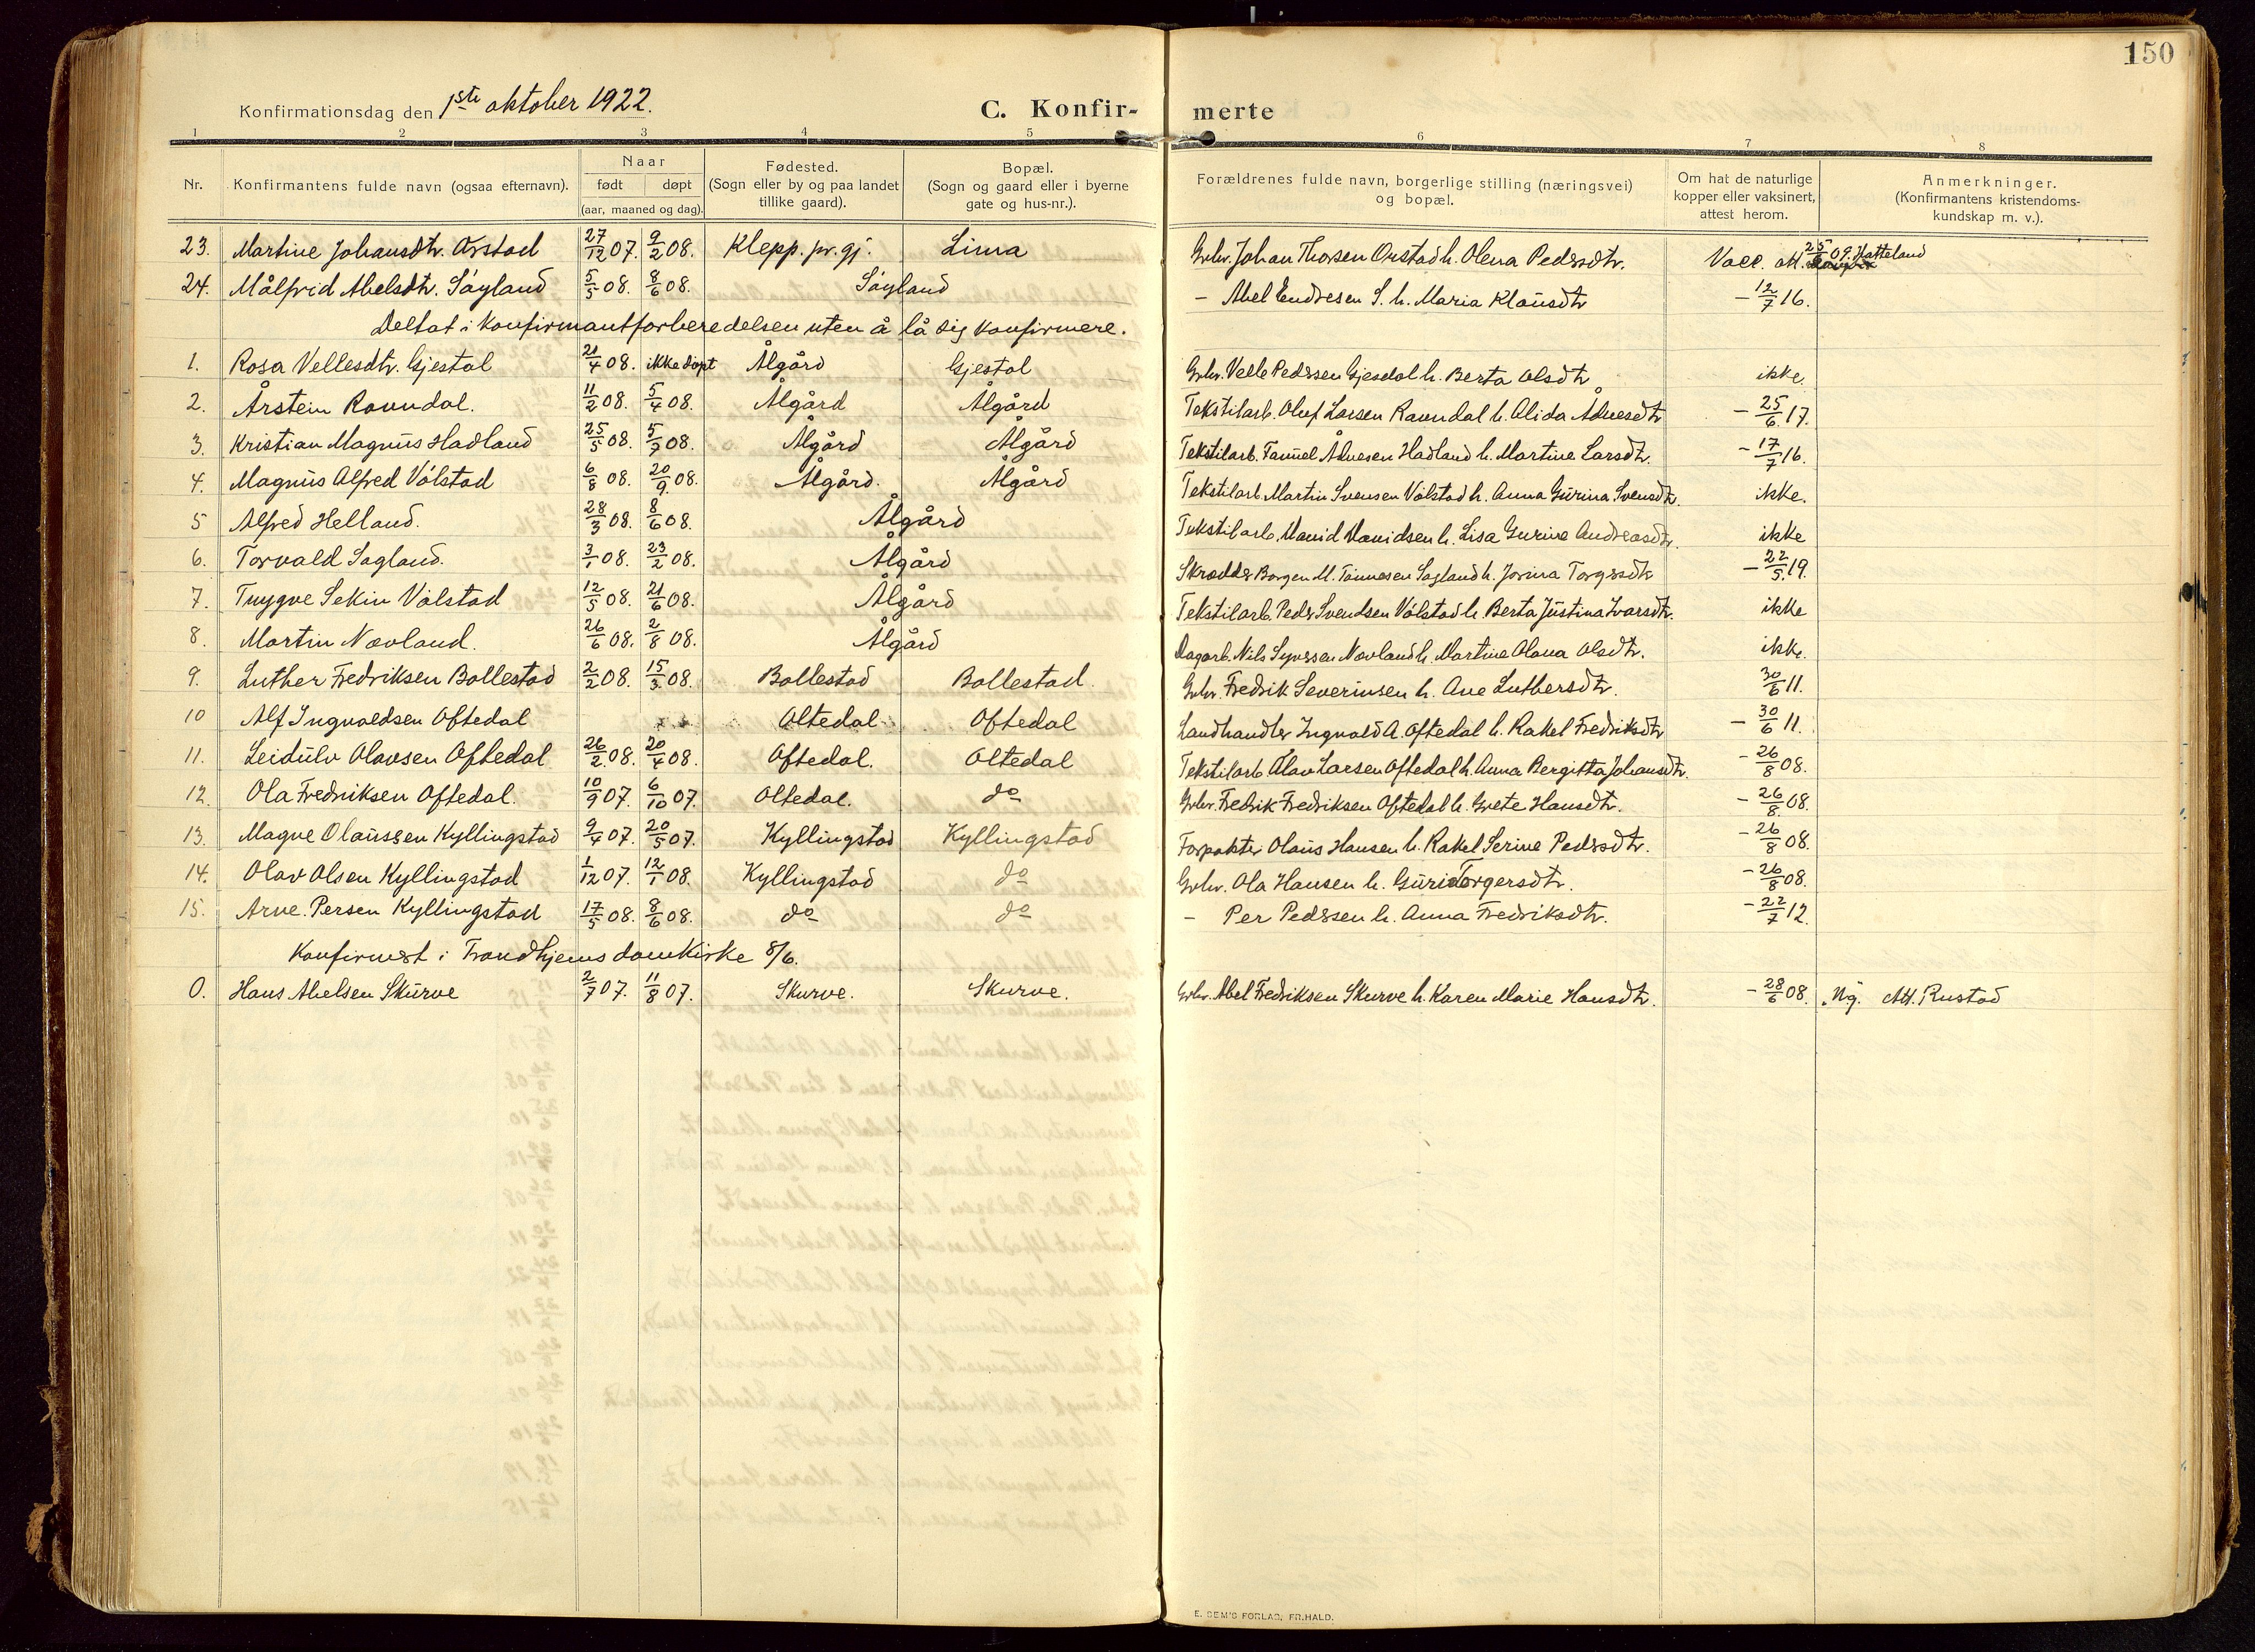 150
Konfirmationsdag den 1ste oktober 1922. C. Konfir- merte
1 2 3 4 5 6 7 8
Nr. Konfirmantens fulde navn (ogsaa efternavn). Naar født døpt (aar, maaned og dag). Fødested. (Sogn eller by og paa landet tillike gaard). Bopæl. (Sogn og gaard eller i byerne gate og hus-nr.). Forældrenes fulde navn, borgerlige stilling (næringsvei) og bopæl. Om hat de naturlige kopper eller vaksinert, attest herom. Anmerkninger. (Konfirmantens kristendoms- kundskap m. v.).
23. Martine Johansdtr. Orstad 27/12 07. 9/2 08. Klepp. pr. gj. Lima Gbr. Johan Thorsen Orstad h. Olena Pedersdtr. Vacc. att. 25/6 09. Hatteland
24. Målfrid Abelsdtr. Søyland 5/5 08. 8/6 08. Søyland – Abel Endresen S. h. Maria Klausdtr – 12/7 16.
Deltat i konfirmantforberedelsen uten å la sig konfirmere.
1. Rosa Vellesdtr. Gjestal 21/4 08. ikke døpt Ålgård Gjestal Gbr. Velle Pedersen Gjesdal h. Berta Olsdtr ikke.
2. Årstein Ravndal. 11/2 08. 5/4 08. Ålgård Ålgård Tekstilarb. Oluf Larsen Ravndal h. Alida Ådnesdtr – 25/6 17.
3. Kristian Magnus Hadland 25/5 08. 5/7 08. Ålgård Ålgård Tekstilarb. Fanuel Ådnesen Hadland h. Martine Larsdtr. – 17/7 16.
4. Magnus Alfred Vølstad 6/8 08. 20/9 08. Ålgård. Ålgård Tekstilarb Martin Svensen Vølstad h. Anna Gurina Svensdtr. ikke.
5 Alfred Helland. 28/3 08. 8/6 08. Ålgård Tekstilarb. David Davidsen h. Lisa Gurine Andreasdtr. ikke
6. Torvald Sagland. 3/1 08. 23/2 08. Ålgård Skredder Borgen M. Tønnesen Sagland h. Jorina Torgersdtr – 22/5 19.
7. Trygve Sekin Vølstad 12/5 08. 21/6 08. Ålgård Tekstilarb. Peder Svendsen Vølstad h. Berta Justina Ivarsdtr. ikke
8. Martin Nævland. 26/6 08. 2/8 08. Ålgård Dagarb. Nils Syversen Nævland h. Martine Olava Olsdtr. ikke.
9. Luther Fredriksen Bollestad 2/2 08. 15/3 08. Bollestad Bollestad. Gbr. Fredrik Severinsen h. Ane Luthersdtr. 30/6 11.
10 Alf Ingvaldsen Oftedal Oltedal Oftedal Landhandler Ingvald A. Oftedal h. Rakel Fredriksdtr – 30/6 11.
11. Leidulv Olavsen Oftedal 26/2 08. 20/4 08. Oftedal. Oltedal Tekstilarb Olav Larsen Oftedal h. Anna Bergitta Johansdtr. – 26/8 08.
12. Ola Fredriksen Oftedal. 10/9 07. 6/10 07. Oltedal. do Gbr. Fredrik Fredriksen Oftedal h. Grete Hansdtr. – 26/8 08.
13. Magne Olaussen Kyllingstad 9/4 07. 20/5 07. Kyllingstad Kyllingstad Forpakter Olaus Hansen h. Rakel Serine Pedersdtr. – 26/8 08.
14. Olav Olsen Kyllingstad 1/12 07. 12/1 08. Kyllingstad do Gbr. Ola Hansen h. Guri Torgersdtr. – 26/8 08.
15. Arne Persen Kyllingstad 17/5 08. 8/6 08. do do – Per Pedersen h. Anna Fredriksdtr. – 22/7 12.
Konfirmert i Trondhjems domkirke 8/6.
0. Hans Abelsen Skurve 2/7 07. 11/8 07. Skurve. Skurve. Gbr. Abel Fredriksen Skurve h. Karen Marie Hansdtr. – 28/6 08. Mg. Att. Rustad
E. SEM'S FORLAG, FR.HALD.